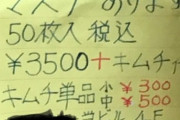 マスク あります
50枚入 税込
¥3500+キムチ
キムチ単品 小 ¥300
中 ¥500
ビル 4F